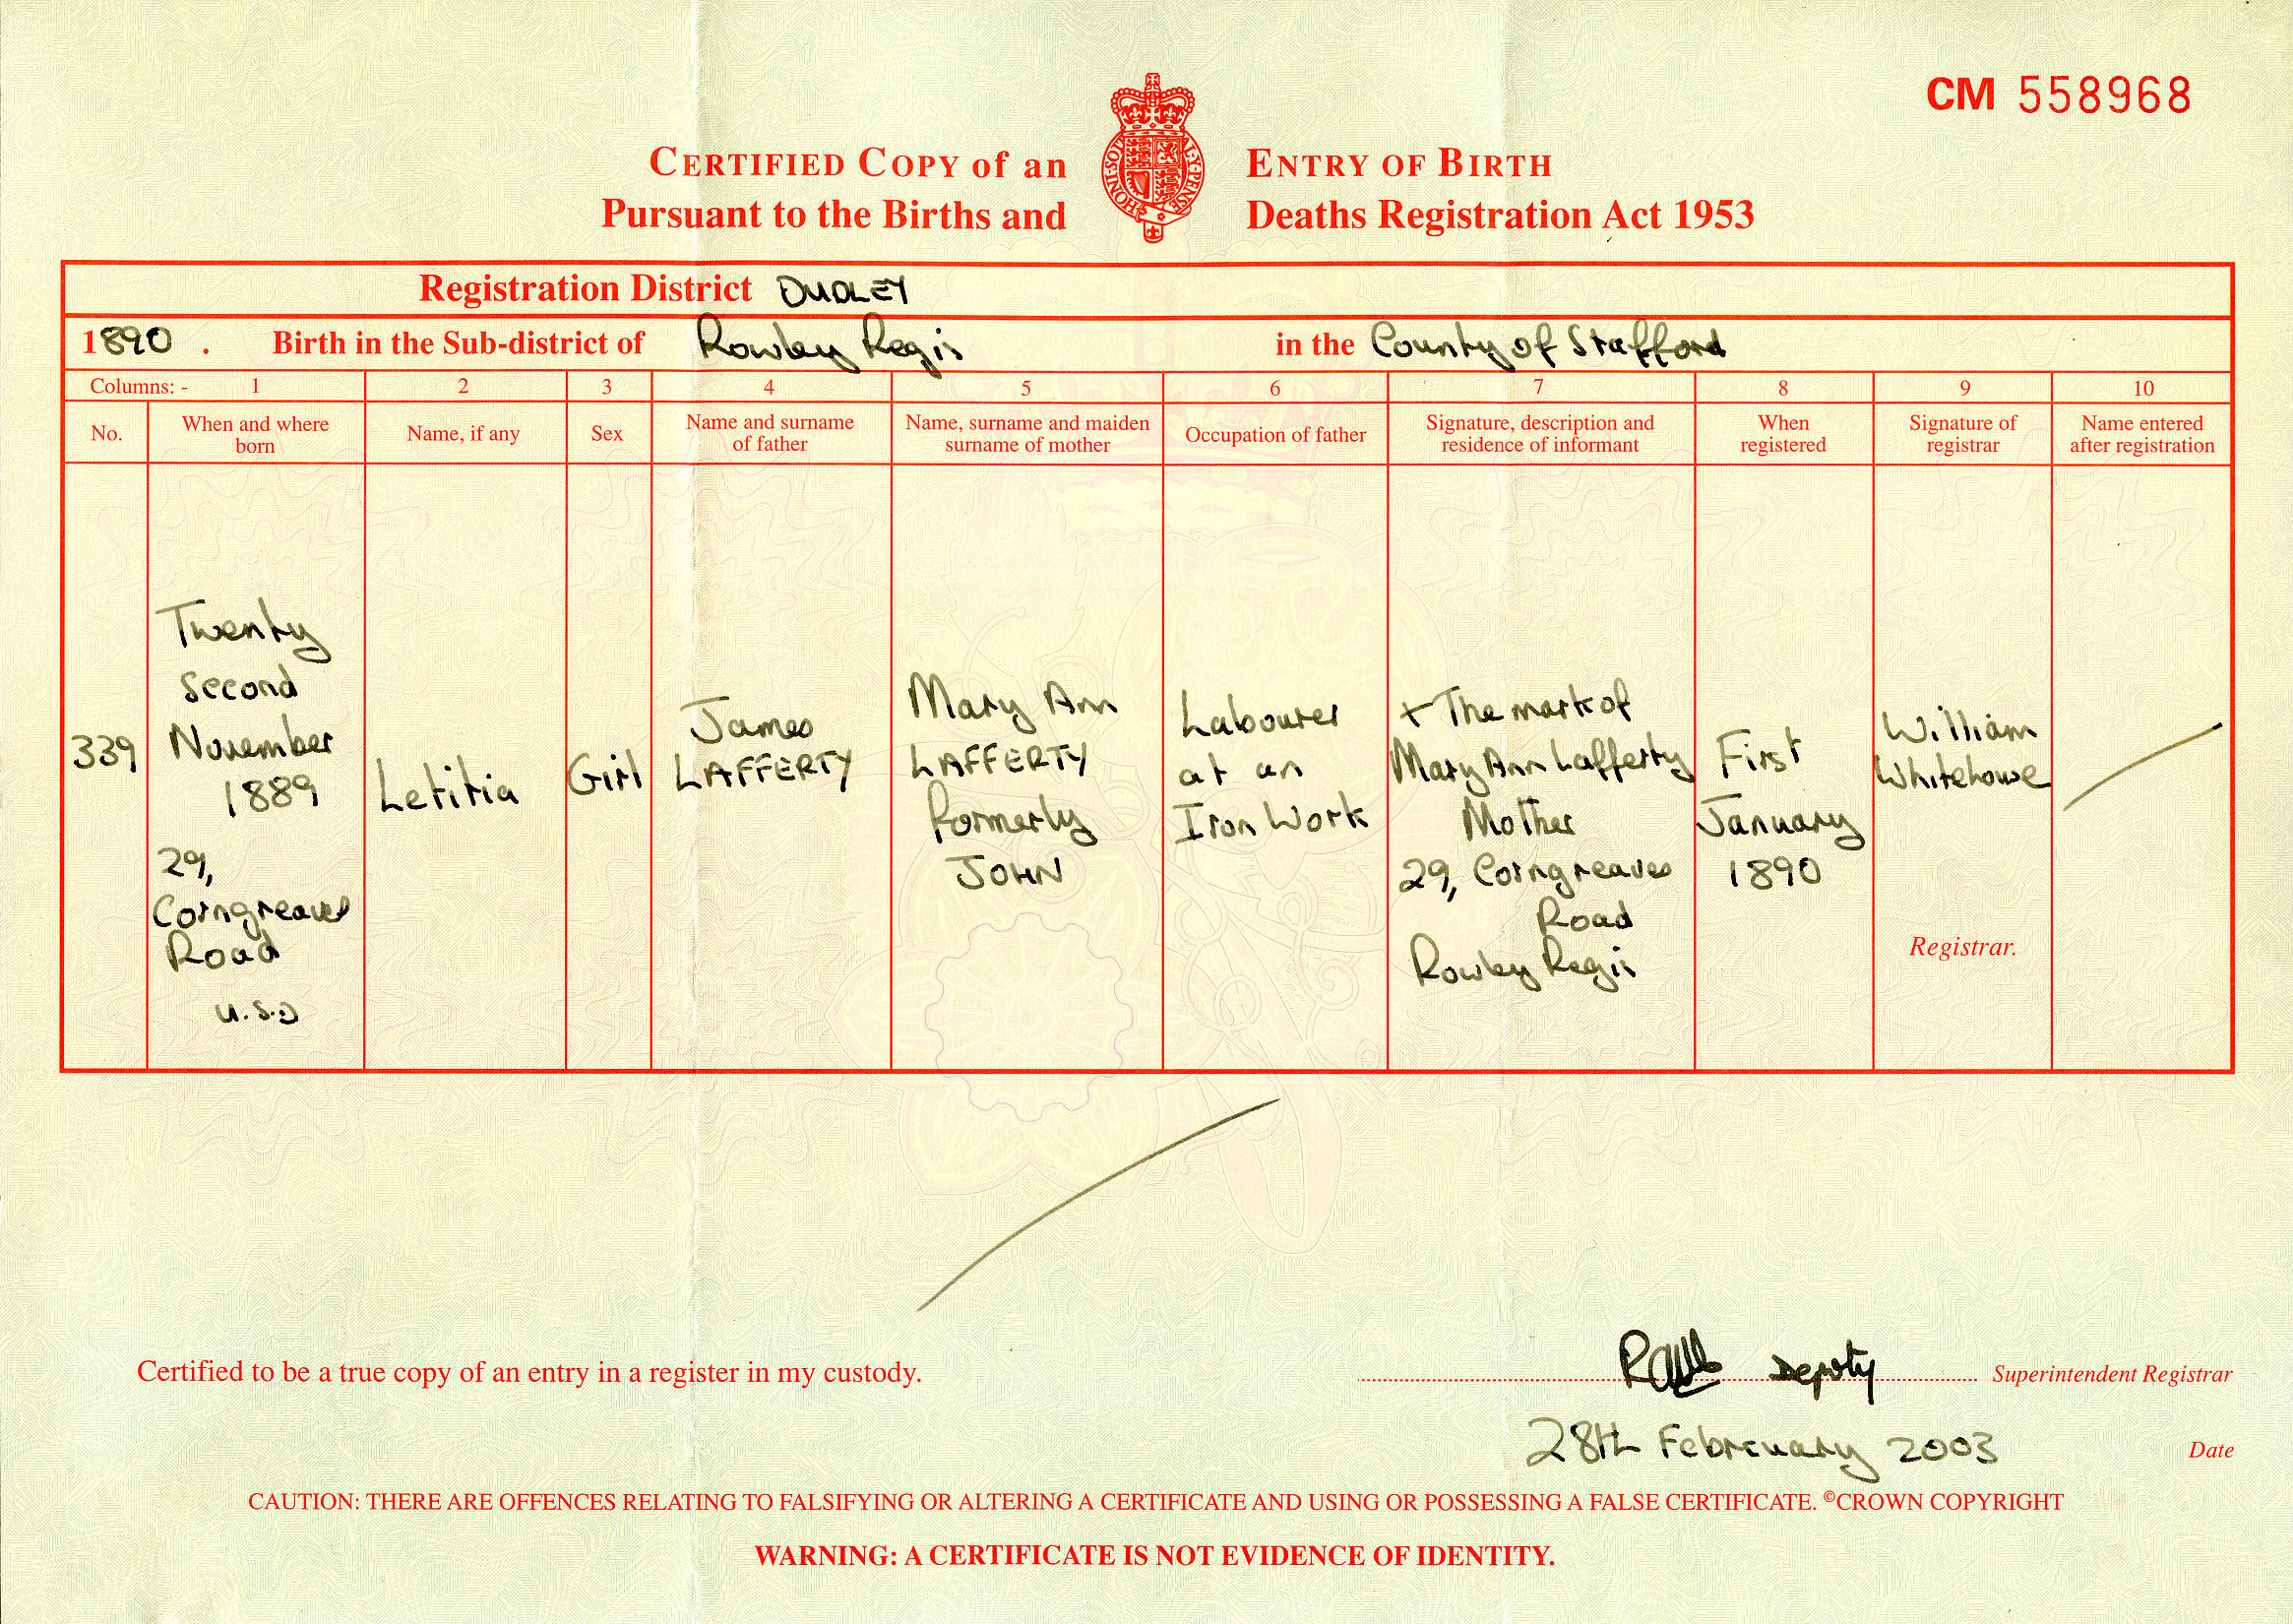 CM 558968
CERTIFIED COPY of an ENTRY OF BIRTH
Pursuant to the Births and Deaths Registration Act 1953
HONI·SOIT AL·Y·PENSE
Registration District DUDLEY
1890. Birth in the Sub-district of Rowley Regis in the County of Stafford
Columns: - 1 2 3 4 5 6 7 8 9 10
No.
When and where
born
Name, if any
Sex
Name and surname
of father
Name, surname and maiden
surname of mother
Occupation of father
Signature, description and
residence of informant
When
registered
Signature of
registrar
Name entered
after registration
339
Twenty
second
November
1889
29,
Corngreaves
Road
U.S.D
Letitia
Girl
James
LAFFERTY
Mary Ann
LAFFERTY
formerly
JOHN
Labourer
at an
Iron Work
x The mark of
Mary Ann Lafferty
Mother
29, Corngreaves
Road
Rowley Regis
First
January
1890
William
Whitehouse
Registrar.
Certified to be a true copy of an entry in a register in my custody.
Deputy Superintendent Registrar
28th February 2003 Date
CAUTION: THERE ARE OFFENCES RELATING TO FALSIFYING OR ALTERING A CERTIFICATE AND USING OR POSSESSING A FALSE CERTIFICATE. ©CROWN COPYRIGHT
WARNING: A CERTIFICATE IS NOT EVIDENCE OF IDENTITY.